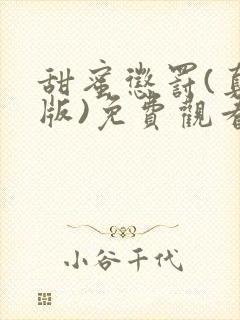 甜蜜懲罰(
版)免費觀
小谷千代